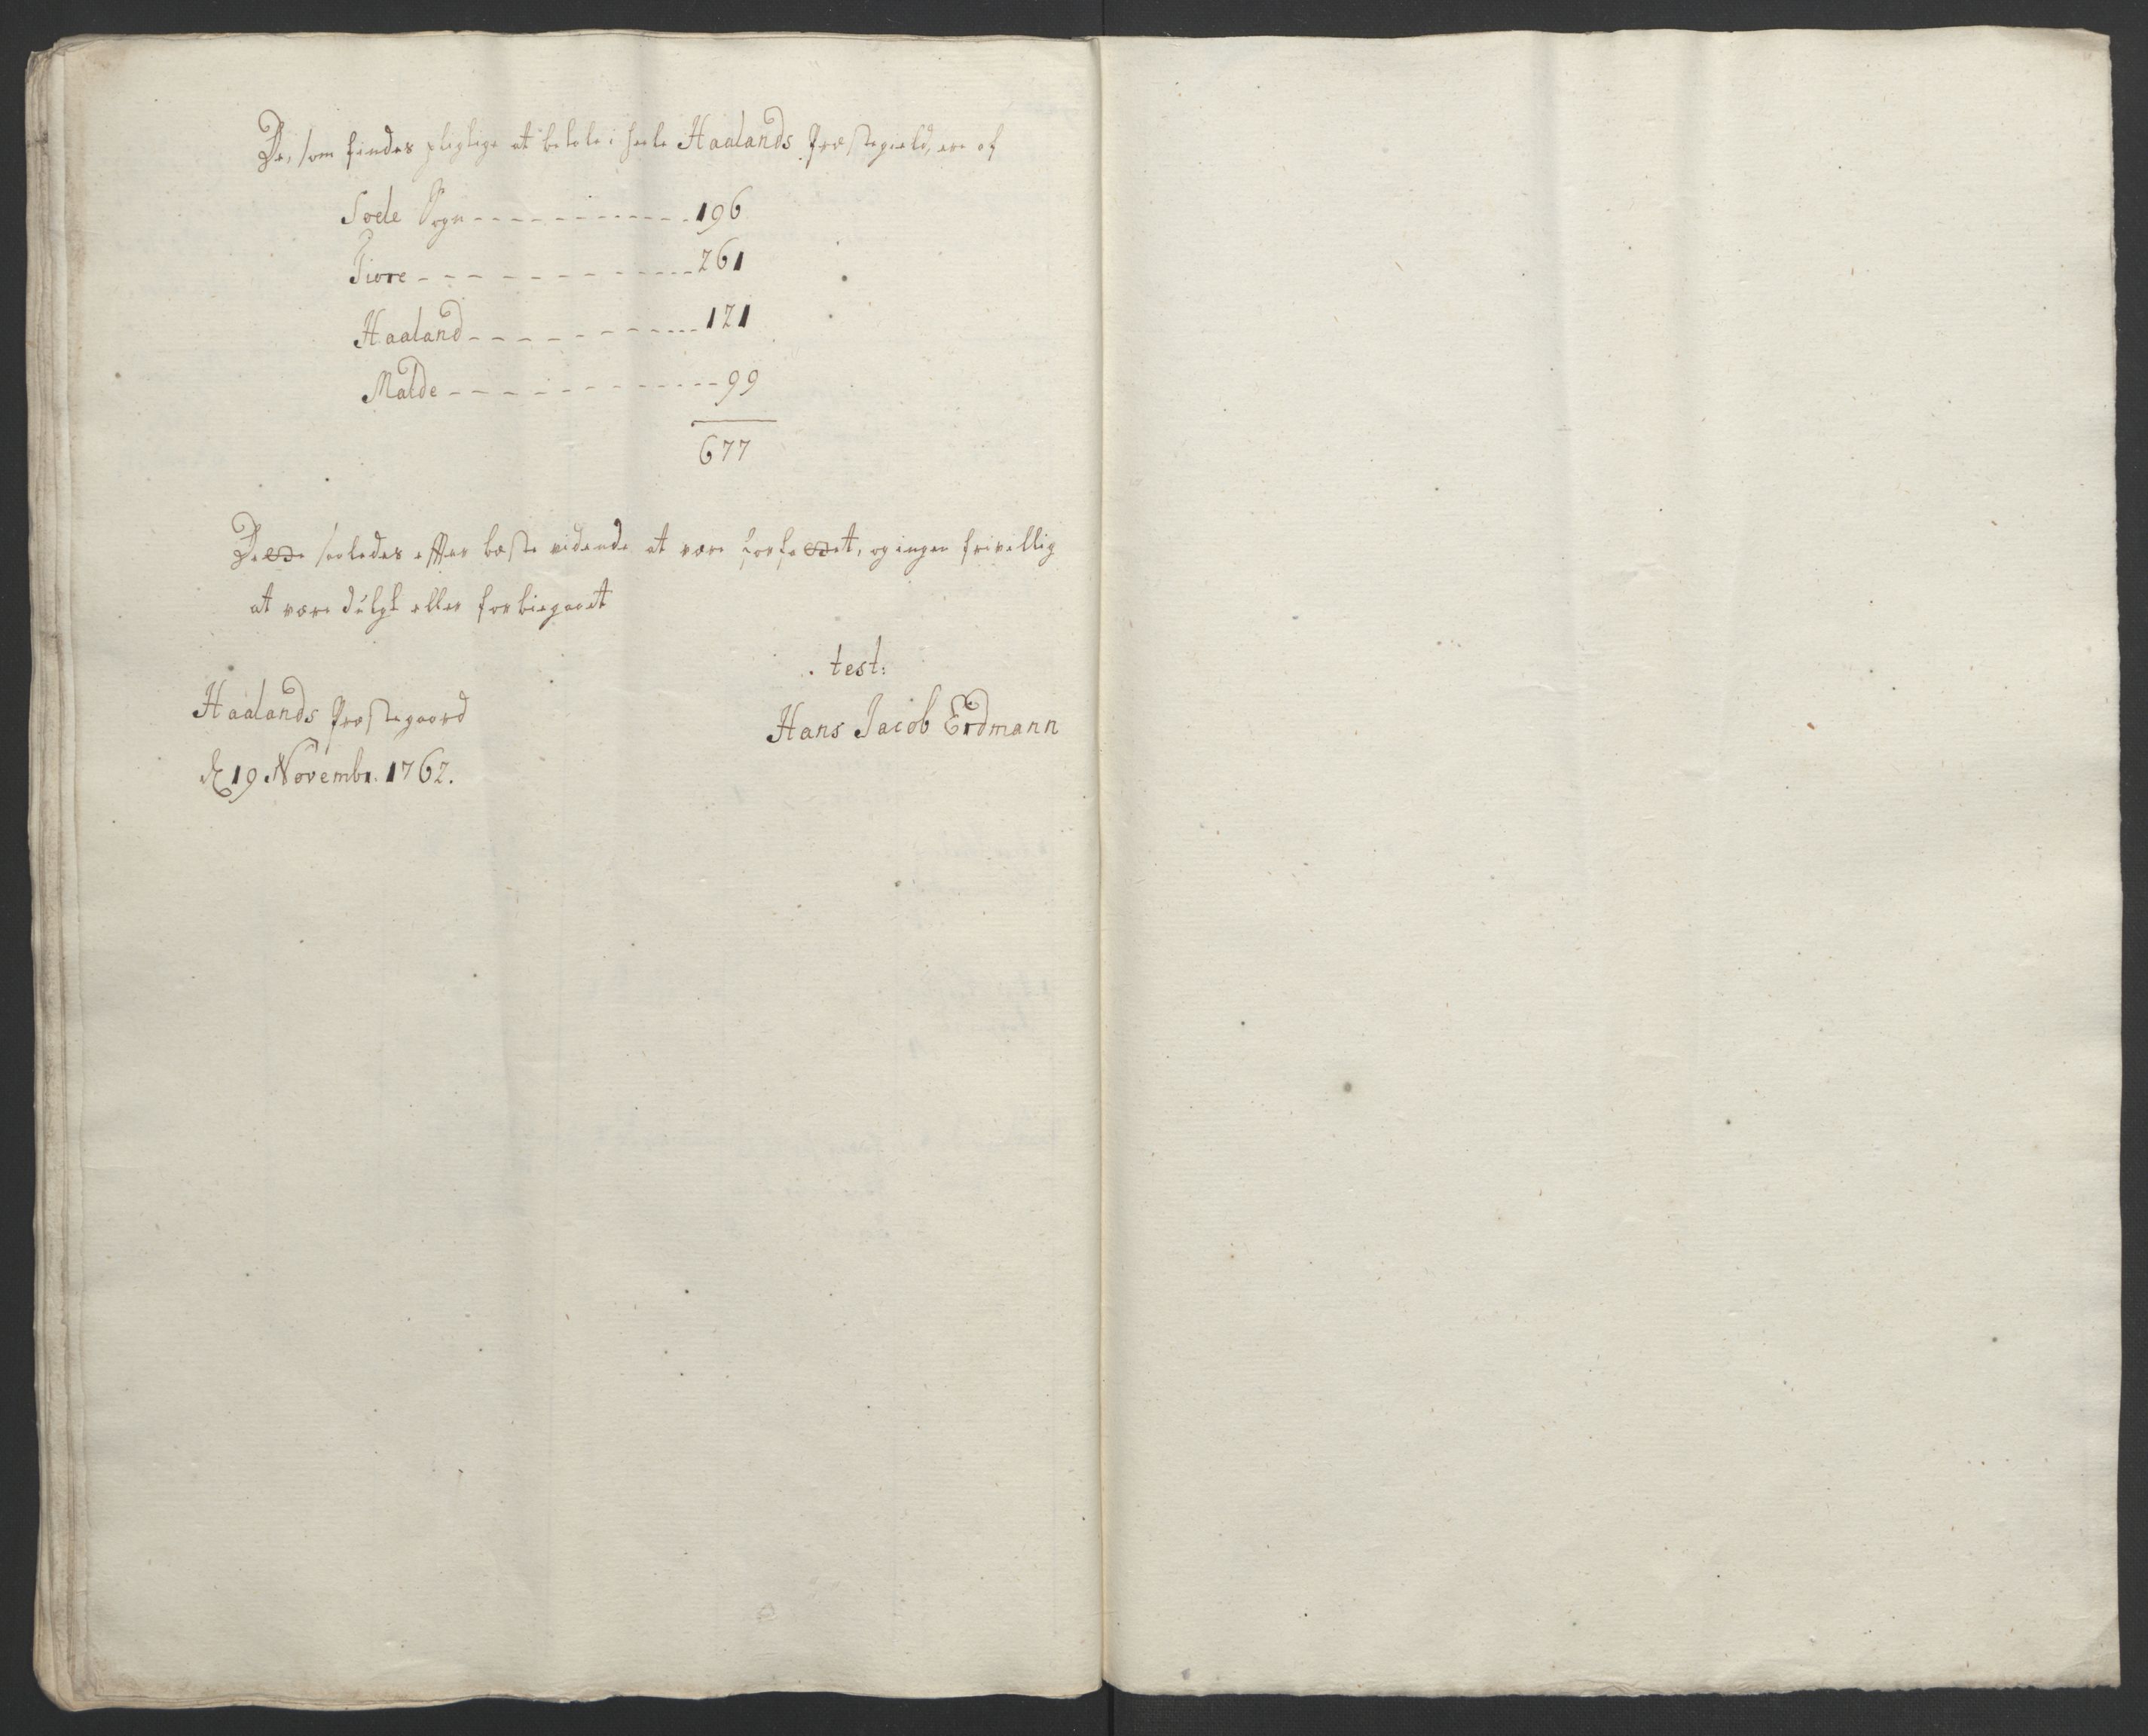 De, som findes pligtige at betale i heele Haalands Præstegield, ere af
Soele Sogn - - - - - - - - - - - 196
Tiore - - - - - - - - - - - - 261
Haaland - - - - - - - - - - 121
Malde - - - - - - - - - - - - 99
677
saaledes efter bæste vidende at være forfattet, og ingen frivellig
at være dulgt eller forbiegaaet
test:
Haalands Præstegaard
Hans Jacob Erdmann
d 19 Novembr. 1762.